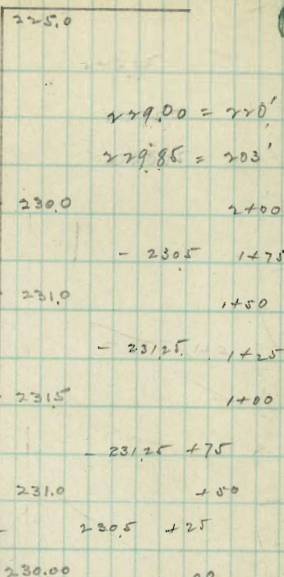 225.0
229.00 = 220'
229.85 = 203'
230.0 2+00
- 230.5 1+75
231.0 1+50
- 231.25 1+25
231.5 1+00
- 231.25 +75
231.0 +50
- 230.5 +25
230.00 00